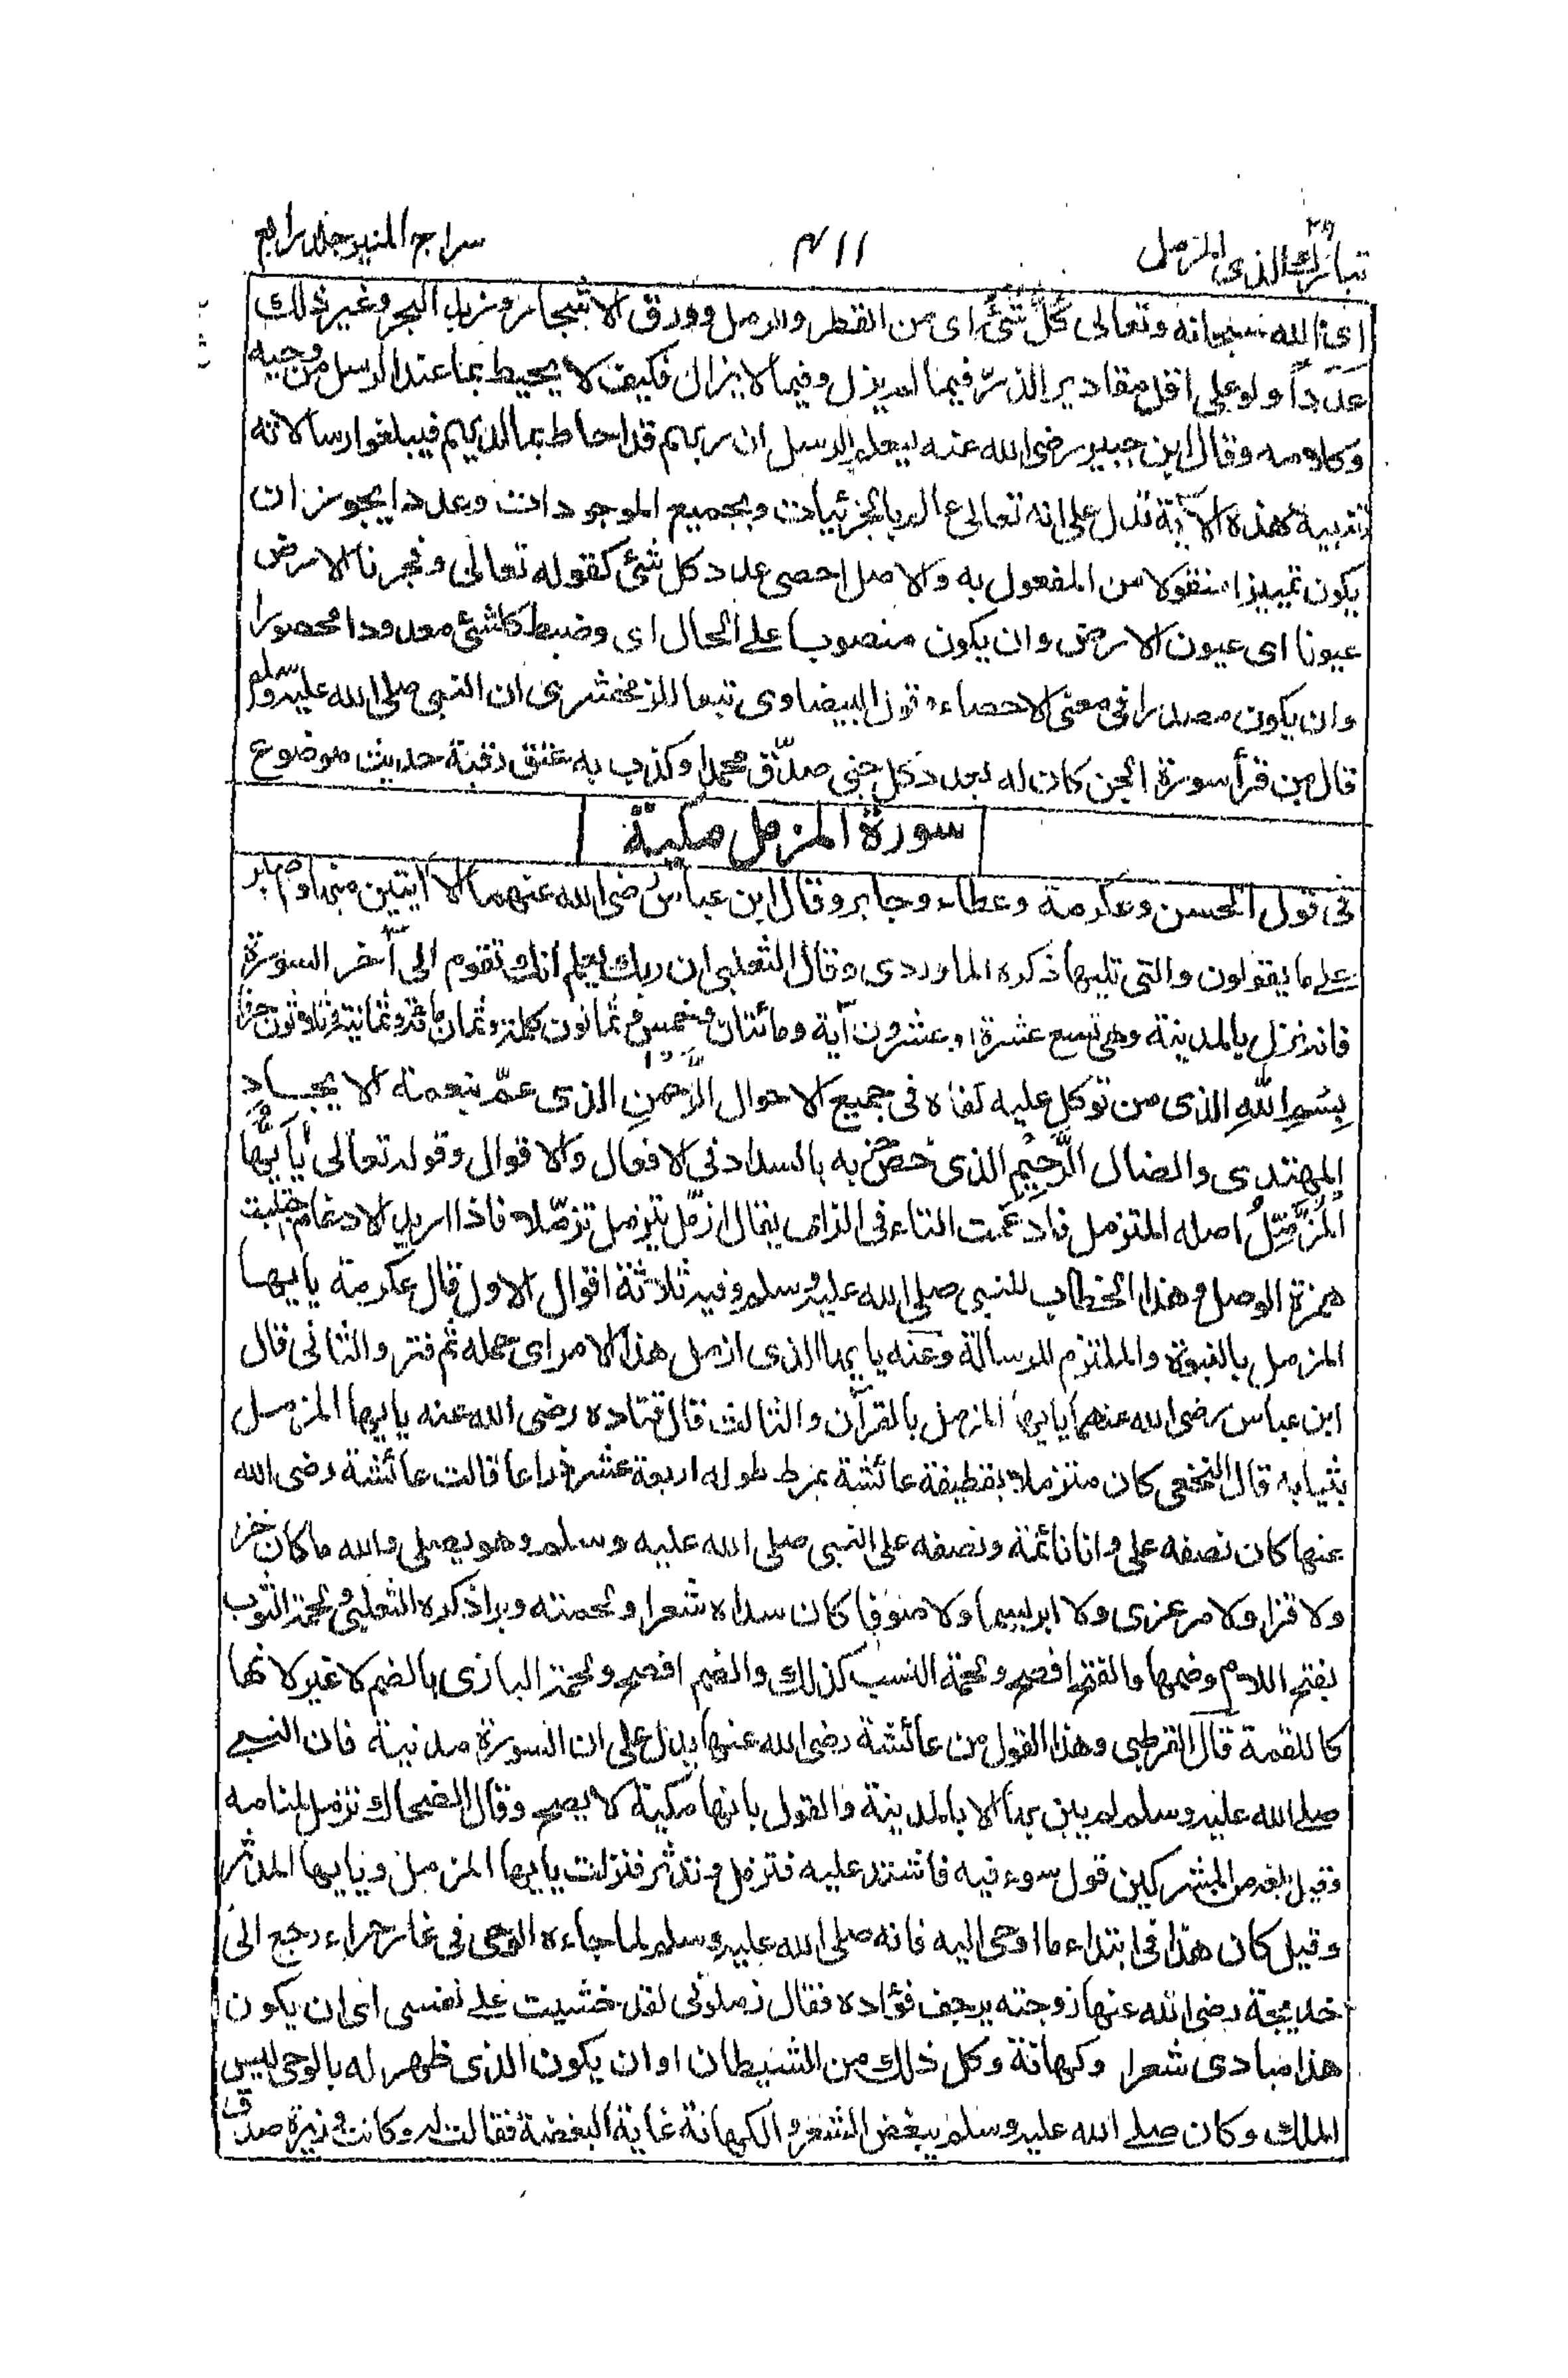 تبارك الذى ٢٩ المزمل
٤١١
سراج المنير جلد رابع
اى الله سبحانه وتعالى كُلَّ شَىْءٍ اى من القطر والرمل وورق الاشجار وزبد البحر وغير ذلك
عَدَداً ولو على اقل مقادير الذرّ فيما لم يزل وفيما لا يزال فكيف لا يحيط بما عند الرسل من وحيه
وكلامه وقال ابن جبير رضى الله عنه ليعلم الرسل ان ربهم قد احاط بما لديهم فيبلغوا رسالاته
تنبيه هذه الآية تدل على انه تعالى عالم بالجزئيات وبجميع الموجودات وعددا يجوز ان
يكون تمييزا منقولا من المفعول به والاصل احصى عدد كل شئ كقوله تعالى وفجرنا الارض
عيونا اى عيون الارض وان يكون منصوبا على الحال اى وضبط كل شئ معدودا محصورا
وان يكون مصدرا فى معنى الاحصاء وقول البيضاوى تبعا للزمخشرى ان النبى صلى الله عليه وسلم
قال من قرأ سورة الجن كان له بعدد كل جنى صدّق محمدا وكذب به عتق رقبة حديث موضوع
سورة المزمل مكية
فى قول الحسن وعكرمة وعطاء وجابر وقال ابن عباس رضى الله عنهما الا آيتين منها واصبر
على ما يقولون والتى تليها ذكره الماوردى وقال الثعلبى ان ربك يعلم انك تقوم الى آخر السورة
فانه نزل بالمدينة وهى تسع عشرة او عشرون آية ومائتان وخمس وثمانون كلمة وثمان مائة وثمانية وثلاثون حرفا
بِسْمِ اللّٰهِ الذى من توكل عليه كفاه فى جميع الاحوال الرَّحْمٰنِ الذى عمّ بنعمة الايجاد
المهتدى والضال الرَّحِيْمِ الذى خص حزبه بالسداد فى الافعال والاقوال وقوله تعالى يٰٓاَيُّهَا
الْمُزَّمِّلُ اصله المتزمل فادغمت التاء فى الزاى يقال ازمّل يتزمل تزمّلا فاذا اريد الادغام جلبت
همزة الوصل وهذا الخطاب للنبى صلى الله عليه وسلم وفيه ثلاثة اقوال الاول قال عكرمة يا ايها
المزمل بالنبوة والملتزم للرسالة وعنه يا يها الذى ازمل هذا الامر اى حمله ثم فتر والثانى قال
ابن عباس رضى الله عنهما يا يها المزمل بالقرآن والثالث قال قتاده رضى الله عنه يا يها المزمل
بثيابه قال النخعى كان متزملا بقطيفة عائشة بمرط طوله اربعة عشر ذراعا قالت عائشة رضى الله
عنها كان نصفه على وانا نائمة ونصفه على النبى صلى الله عليه وسلم وهو يصلى والله ما كان خزا
ولا قزا ولا مرعزى ولا ابريسما ولا صوفا كان سداه شعرا ولحمته وبرا ذكره الثعلبى ولحمة الثوب
بفتح اللام وضمها والفتح افصح ولحمة النسب كذلك والضم افصح ولحمة البازى بالضم لا غير لانها
كاللقمة قال القرطبى وهذا القول من عائشة رضى الله عنها يدل على ان السورة مدنية فان النبى
صلى الله عليه وسلم لم يبن بها الا بالمدينة والقول بانها مكية لا يصح وقال الضحاك تزمل لمنامه
وقيل بلغه من المشركين قول سوء فيه فاشتد عليه فتزمل وتدثر فنزلت يا يها المزمل ويا يها المدثر
وقيل كان هذا فى ابتداء ما اوحى اليه فانه صلى الله عليه وسلم لما جاءه الوحى فى غار حراء رجع الى
خديجة رضى الله عنها زوجته يرجف فؤاده فقال زملونى لقد خشيت على نفسى اى ان يكون
هذا مبادى شعرا وكهانة وكل ذلك من الشيطان او ان يكون الذى ظهر له بالوحى ليس
الملك وكان صلى الله عليه وسلم يبغض الشعر والكهانة غاية البغضة فقالت له وكانت وزيرة صدق